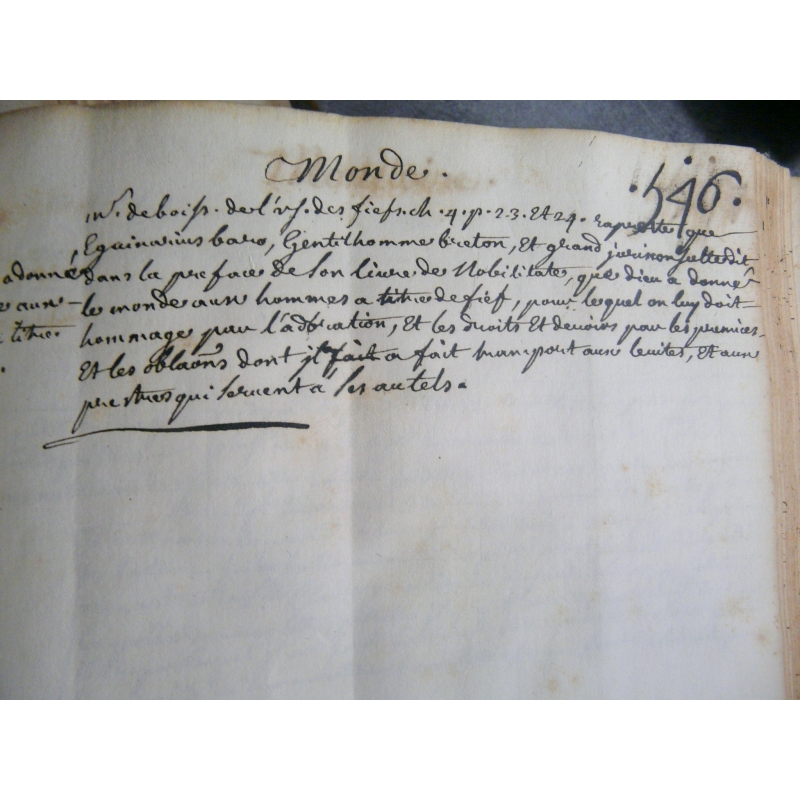 Monde.
.546.
Mr. de boiss. de l'us. des fiefs. ch. 4. p. 23. Et 24. raporte que
Eguinarius baro, Gentilhomme breton, Et grand jurisconsulte dit
dans la preface de son livre de Nobilitate, que dieu a donné
le monde aux hommes a titre de fief, pour lequel on luy doit
hommage par l'adoration, Et les droits Et devoirs par les premices
Et les oblaōns dont jl fait a fait transport aux levites, Et aux
prestres qui servent a ses autels.
a donné
aux
titre.